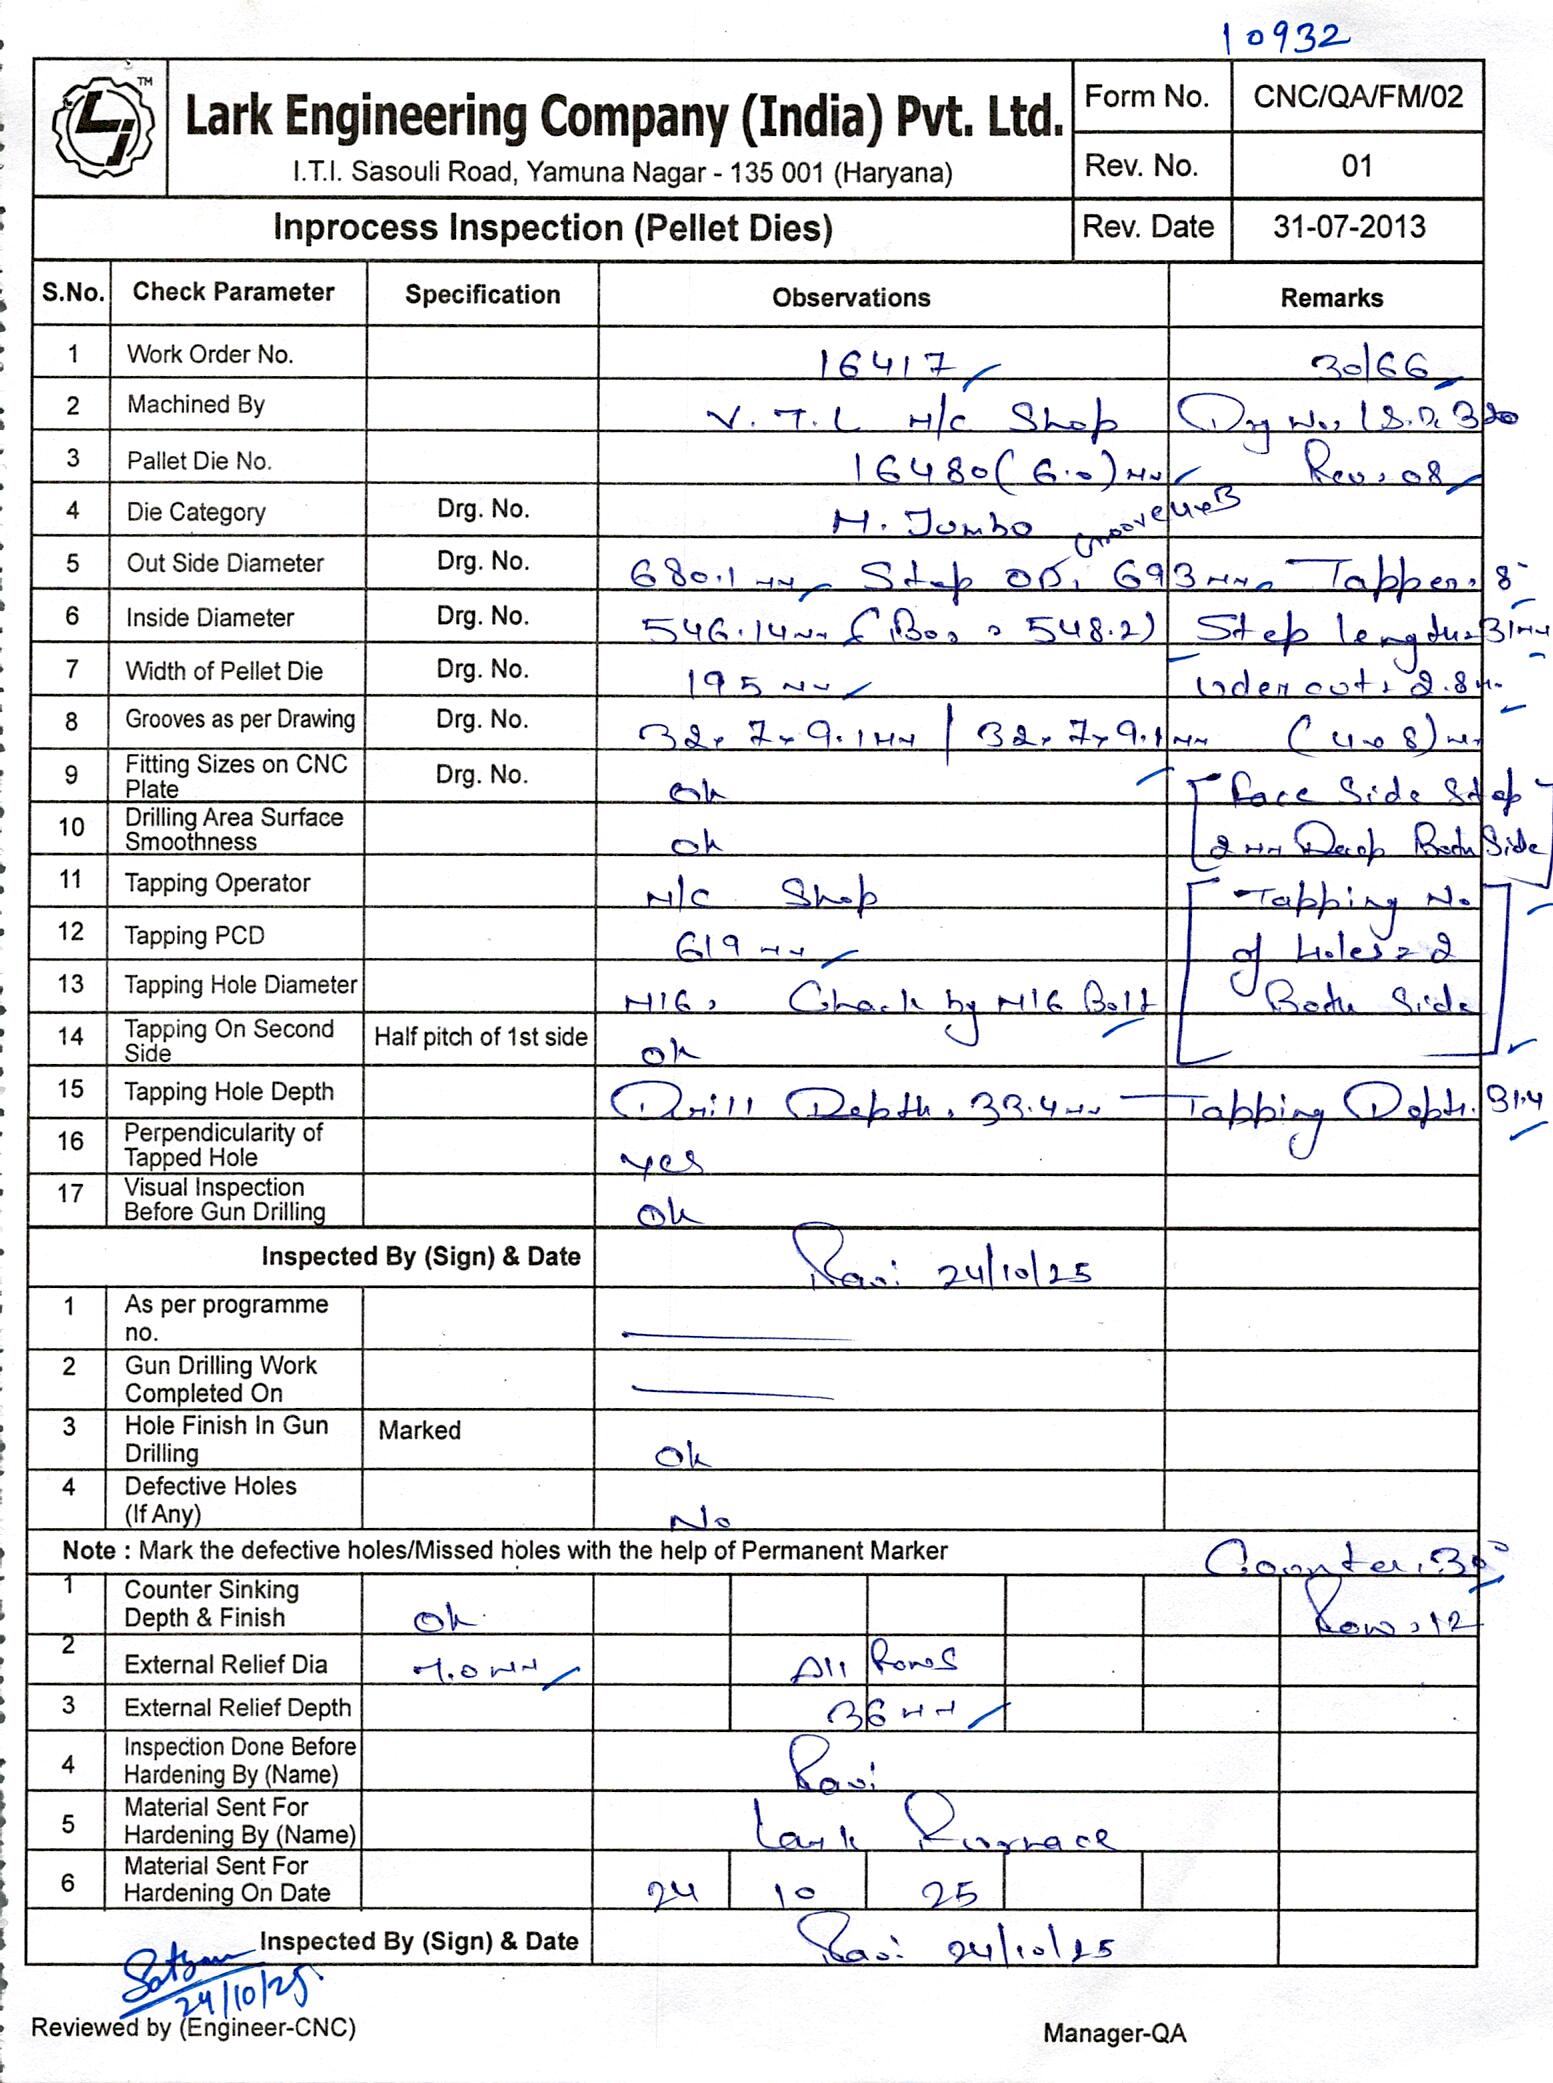 10932
TM
Lark Engineering Company (India) Pvt. Ltd.
I.T.I. Sasouli Road, Yamuna Nagar - 135 001 (Haryana)
Form No. CNC/QA/FM/02
Rev. No. 01
Inprocess Inspection (Pellet Dies) Rev. Date 31-07-2013
S.No. Check Parameter Specification Observations Remarks
1 Work Order No. 16417 30/66
2 Machined By V.T.L M/C Shop Drg No.
3 Pallet Die No. 16480 (6.0) mm Rev. 08
4 Die Category Drg. No. M. Jumbo Groove
5 Out Side Diameter Drg. No. 680.1 mm Step OD. 693 mm Tapper. 8°
6 Inside Diameter Drg. No. 546.14 mm 548.2) Step length 31 mm
7 Width of Pellet Die Drg. No. 195 mm undercut 2.8
8 Grooves as per Drawing Drg. No. 32 x 7 x 9.1 mm / 32 x 7 x 9.1 mm
9 Fitting Sizes on CNC Plate Drg. No. Ok Face Side Step
10 Drilling Area Surface Smoothness Ok 2 mm Deep Both Side
11 Tapping Operator M/C Shop Tapping No.
12 Tapping PCD 619 mm of holes = 2
13 Tapping Hole Diameter M16, Chack by M16 Bolt Both Side
14 Tapping On Second Side Half pitch of 1st side Ok
15 Tapping Hole Depth Drill Depth. 33.4 mm Tapping Depth. 31.4
16 Perpendicularity of Tapped Hole yes
17 Visual Inspection Before Gun Drilling Ok
Inspected By (Sign) & Date Ravi 24/10/25
1 As per programme no.
2 Gun Drilling Work Completed On
3 Hole Finish In Gun Drilling Marked Ok
4 Defective Holes (If Any) No
Note : Mark the defective holes/Missed holes with the help of Permanent Marker Counter. 30°
1 Counter Sinking Depth & Finish Ok Row 12
2 External Relief Dia 7.0 mm All Rows
3 External Relief Depth 36 mm
4 Inspection Done Before Hardening By (Name) Ravi
5 Material Sent For Hardening By (Name) Lark Furnace
6 Material Sent For Hardening On Date 24 10 25
Inspected By (Sign) & Date Ravi 24/10/25
24/10/25
Reviewed by (Engineer-CNC) Manager-QA